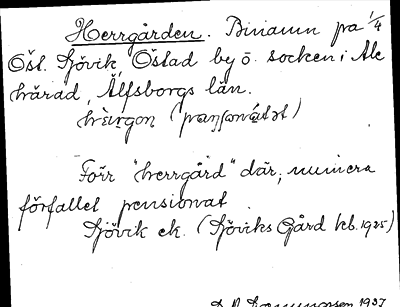 Herrgården. Binamn på 1/4
Öst. Sjövik, Östad by o. socken i Ale
härad, Älfsborgs län.
Förr "herrgård" där, numera
förfallet pensionat.
Sjövik ek. (Sjöviks Gård keb. 1925)
1937